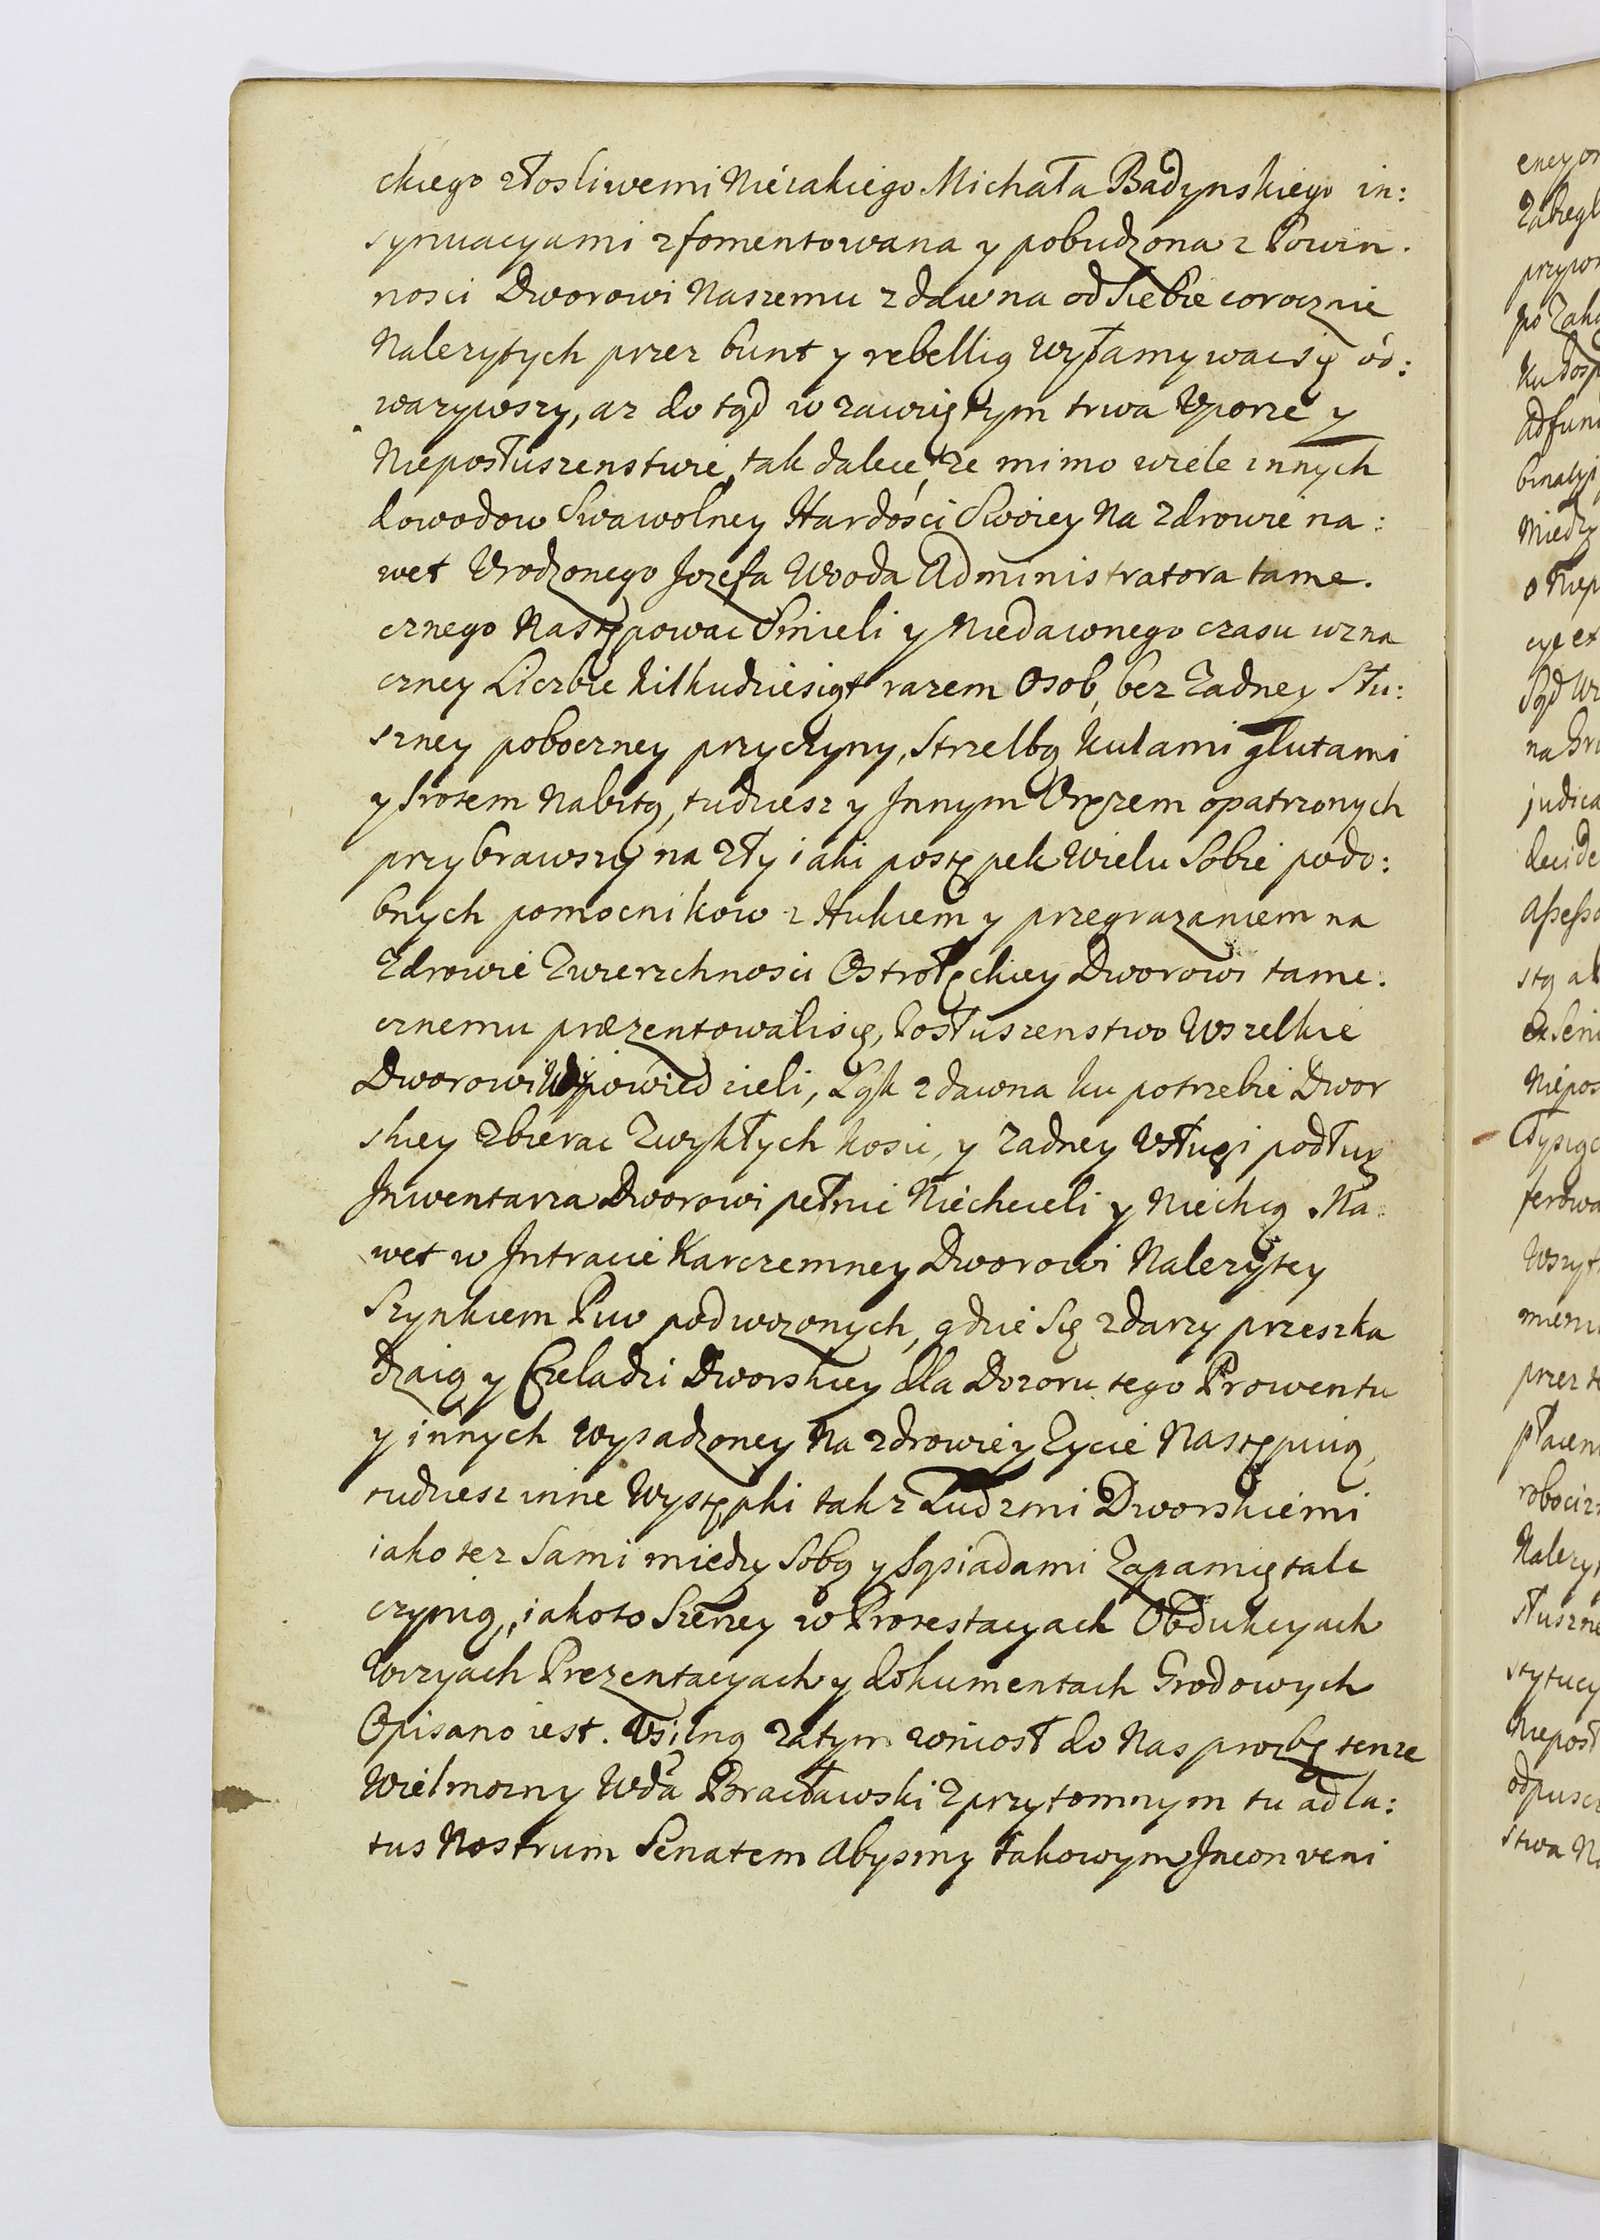 ckiego złosliwemi Niéiakiego Michała Badynskiego in:
synuacyami zfomentowana y pobudzona z Powin.
nosci Dworowi Naszemu z dawna od Siebie corocznie
Nalezytych przez bunt y rebellią wyłamywac się od:
wazywszy, az do tąd w zawziętym trwa Vporze y
Nieposłuszenstwie, tak dalece, ze mimo wiele innych
dowodow Swawolney Hardości Swoiey Na zdrowie na:
wet Vrodzonego Jozefa Wooda Administratora tame.
cznego Następowac Smieli y Niedawnego czasu wzna
czney Liczbie kilkudziesiąt razem Osob, bez Zadney Słu:
szney poboczney przyczyny, Strzelbą kulami glutami
y srotem Nabitą, tudziesz y Jnnym Orężem opatrzonych
przybrawszy na zły iaki postępek Wielu Sobie podo:
bnych pomocnikow z Hukiem y przegrazaniem na
Zdrowie Zwierzchnosci Ostrołęckiey Dworowi tame:
cznemu præzentowalisię, Posłuszenstwo Wszelkie
Dworowi Wypowiedzieli, Łąk zdawna ku potrzebie Dwor
skiey zbierac Zwykłych kosic, y zadney Vsługi podług
Jnwentarza Dworowi pełnic Niechcieli y Niechcą. Na:
wet w Jntracie Karczemney Dworowi Nalezytey
Szynkiem Piw podwozonych, gdzie Się zdarzy przeszka
dzaią y Czeladzi Dworskiey dla Dozoru tego Prowentu
y innych Wysadzoney Na zdrowie y Zycie Następuią,
tudziesz inne Występki tak z Ludzmi Dworskiemi
iako tez Sami miedzy Sobą y Sąsiadami Zapamiętale
czynią, iakoto Szerzey w Protestacyach Obdukcyach
Wizyach Prezentacyach y dokumentach Grodowych
Opisano iest. Vsilną zatym wniosł do Nas prozbę tenze
Wielmozny Wda Bracławski Zprzytomnym tu ad la:
tus Nostrum Senatem Abysmy takowym Jnconveni